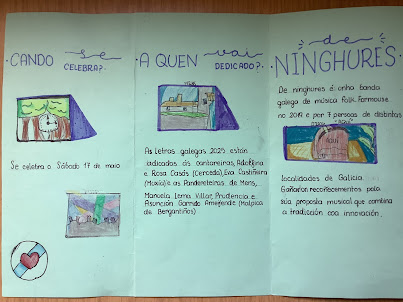 CANDO se
CELEBRA?
Se celebra o Sábado 17 de maio
A QUEN vai
DEDICADO?
As Letras galegas 2025 están
adicadas ás cantareiras, Adolfina
e Rosa Casás (Cerceda), Eva Castiñeira
(Muxía) e as Pandereteiras de Mens,
Manuela Lema Villar, Prudencia e
Asunción Garrido Ameijende (Malpica
de Bergantiños).
de
NINGHURES
De ninghures é unha banda
galega de música folk. Formouse
no 2019 e por 7 persoas de distintas
AQUÍ
localidades de Galicia.
Gañaron recoñecementos pola
súa proposta musical que combina
a tradición coa innovación.